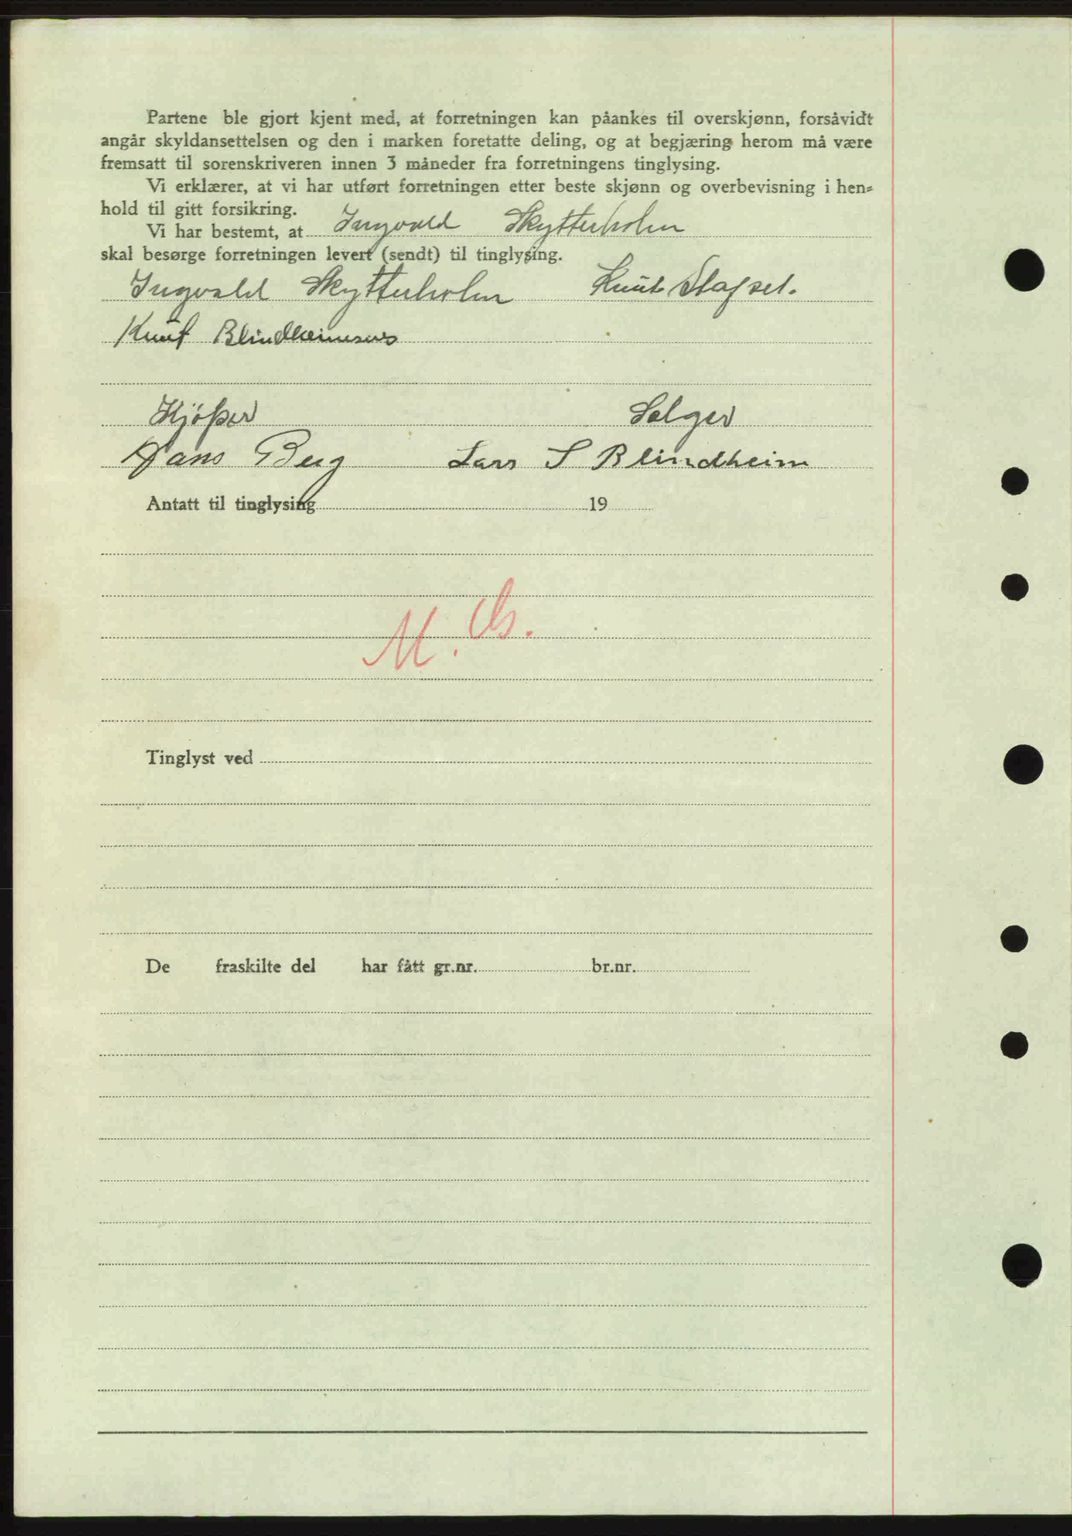 Partene ble gjort kjent med, at forretningen kan påankes til overskjønn, forsåvidt
angår skyldansettelsen og den i marken foretatte deling, og at begjæring herom må være
fremsatt til sorenskriveren innen 3 måneder fra forretningens tinglysing.
Vi erklærer, at vi har utført forretningen etter beste skjønn og overbevisning i hen-
hold til gitt forsikring.
Vi har bestemt, at Ingvald Skytterholm
skal besørge forretningen levert (sendt) til tinglysing.
Ingvald Skytterholm Knut Slafset.
Knut Blindheimsnes
Kjöper Selger
Hans Berg Lars S Blindheim
Antatt til tinglysing 19
M.
Tinglyst ved
De fraskilte del har fått gr.nr. br.nr.